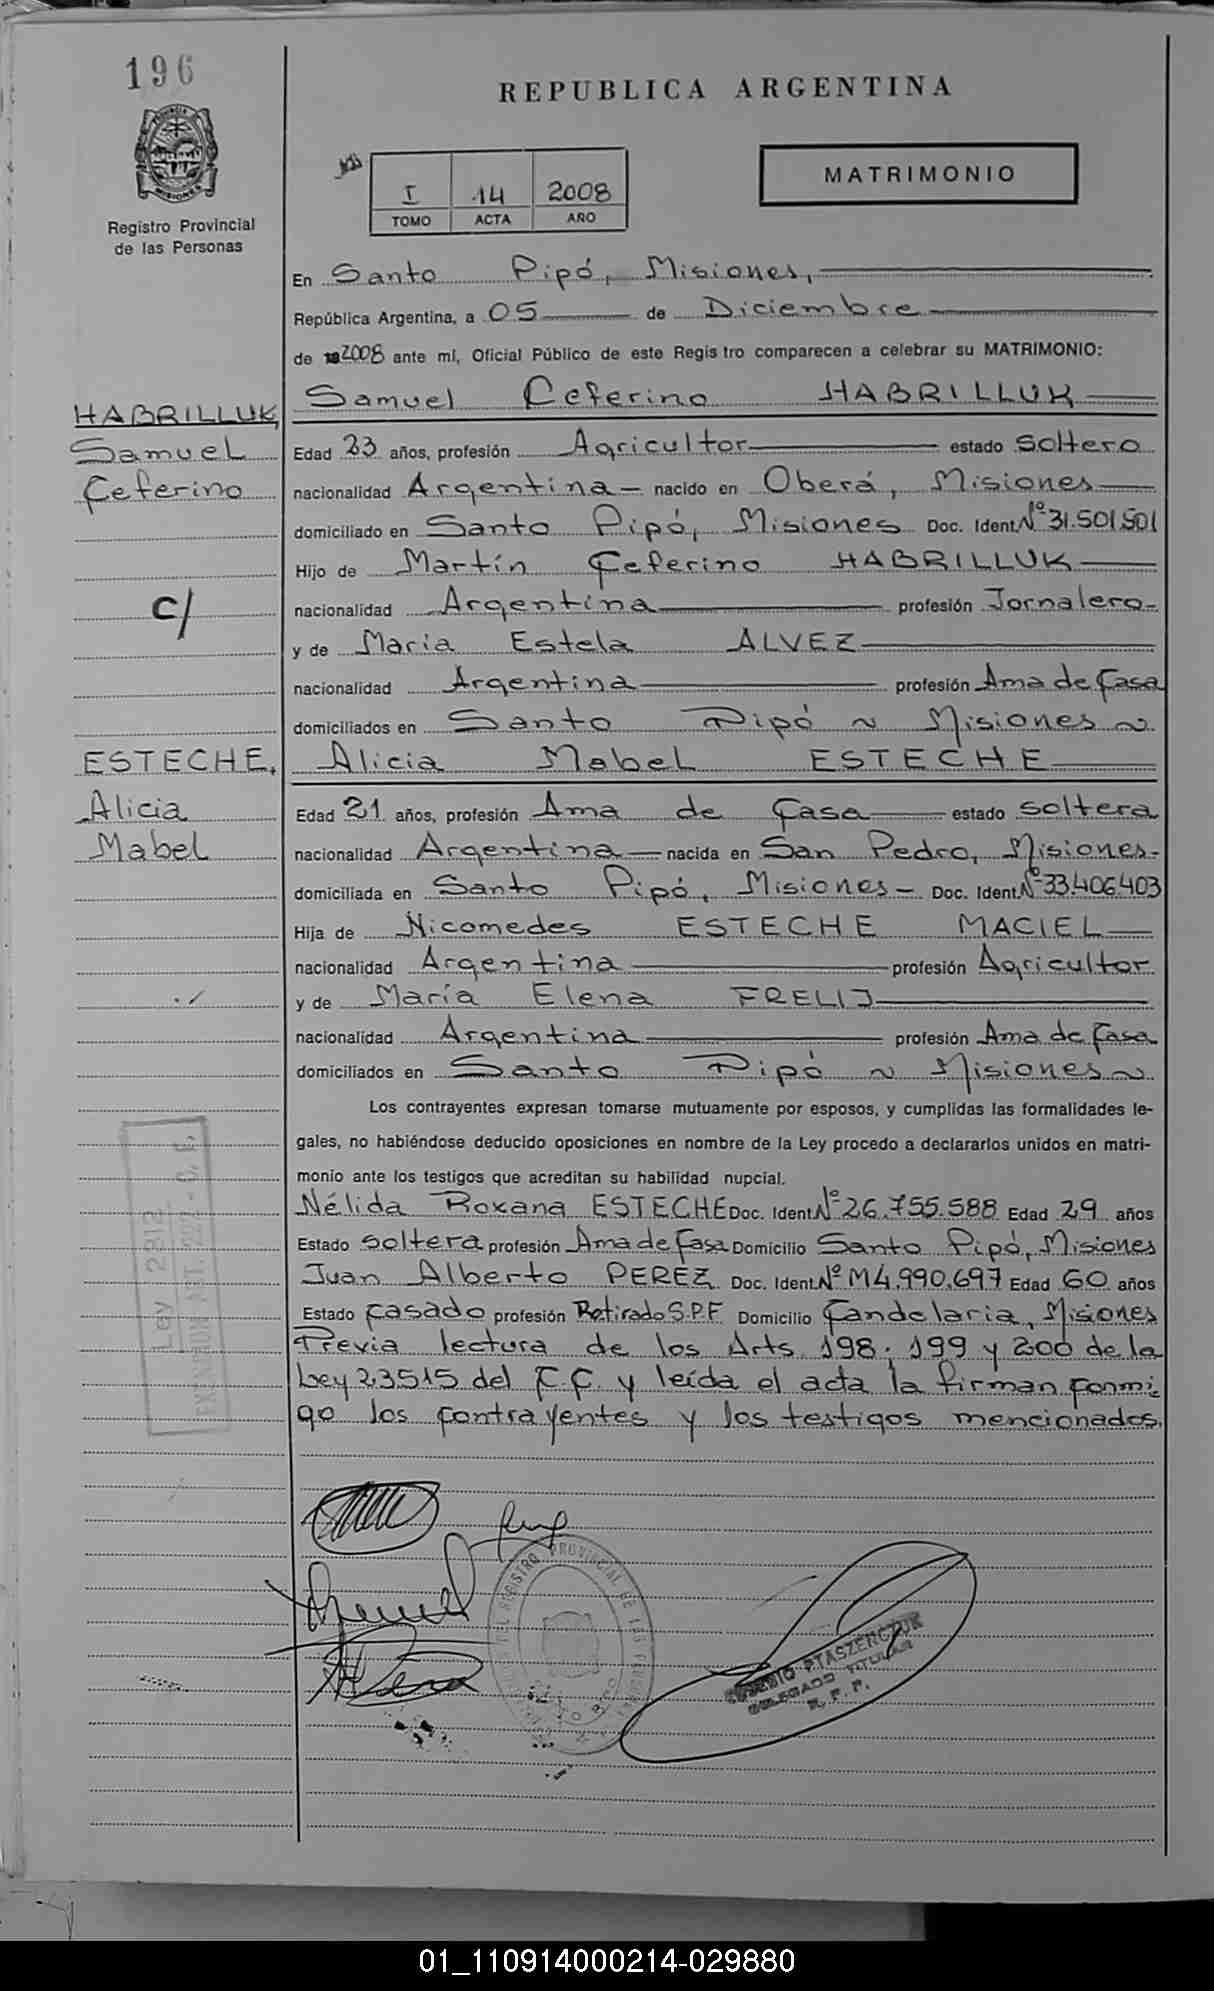 196
REPUBLICA ARGENTINA
I 14 2008
TOMO ACTA AÑO
MATRIMONIO
Registro Provincial
de las Personas
En Santo Pipó, Misiones,
República Argentina, a 05 de Diciembre
de 2008 ante mí, Oficial Público de este Registro comparecen a celebrar su MATRIMONIO:
HABRILLUK,
Samuel
Ceferino
c/
Samuel Ceferino HABRILLUK
Edad 23 años, profesión Agricultor estado soltero
nacionalidad Argentina nacido en Oberá, Misiones
domiciliado en Santo Pipó, Misiones Doc. Ident. Nº 31.501.501
Hijo de Martín Ceferino HABRILLUK
nacionalidad Argentina profesión Jornalero
y de Maria Estela ALVEZ
nacionalidad Argentina profesión Ama de Casa
domiciliados en Santo Pipó ~ Misiones ~
ESTECHE,
Alicia
Mabel
Alicia Mabel ESTECHE
Edad 21 años, profesión Ama de Casa estado soltera
nacionalidad Argentina nacida en San Pedro, Misiones
domiciliada en Santo Pipó, Misiones Doc. Ident. Nº 33.406.403
Hija de Nicomedes ESTECHE MACIEL
nacionalidad Argentina profesión Agricultor
y de María Elena FRELIJ
nacionalidad Argentina profesión Ama de Casa
domiciliados en Santo Pipó ~ Misiones ~
Los contrayentes expresan tomarse mutuamente por esposos, y cumplidas las formalidades le-
gales, no habiéndose deducido oposiciones en nombre de la Ley procedo a declararlos unidos en matri-
monio ante los testigos que acreditan su habilidad nupcial.
Nélida Roxana ESTECHE Doc. Ident. Nº 26.755.588 Edad 29 años
Estado soltera profesión Ama de Casa Domicilio Santo Pipó, Misiones
Juan Alberto PEREZ Doc. Ident. Nº M4.990.697 Edad 60 años
Estado Casado profesión Retirado S.P.F Domicilio Candelaria, Misiones
Previa lectura de los Arts. 198. 199 y 200 de la
Ley 23515 del C.C. y leída el acta la firman conmi
go los contrayentes y los testigos mencionados.
Ley 2812
ART. 222 - C. F.
REGISTRO PROVINCIAL DE LAS
PTASZENCZUK
DELEGADO TITULAR
R. P. P.
01_110914000214-029880